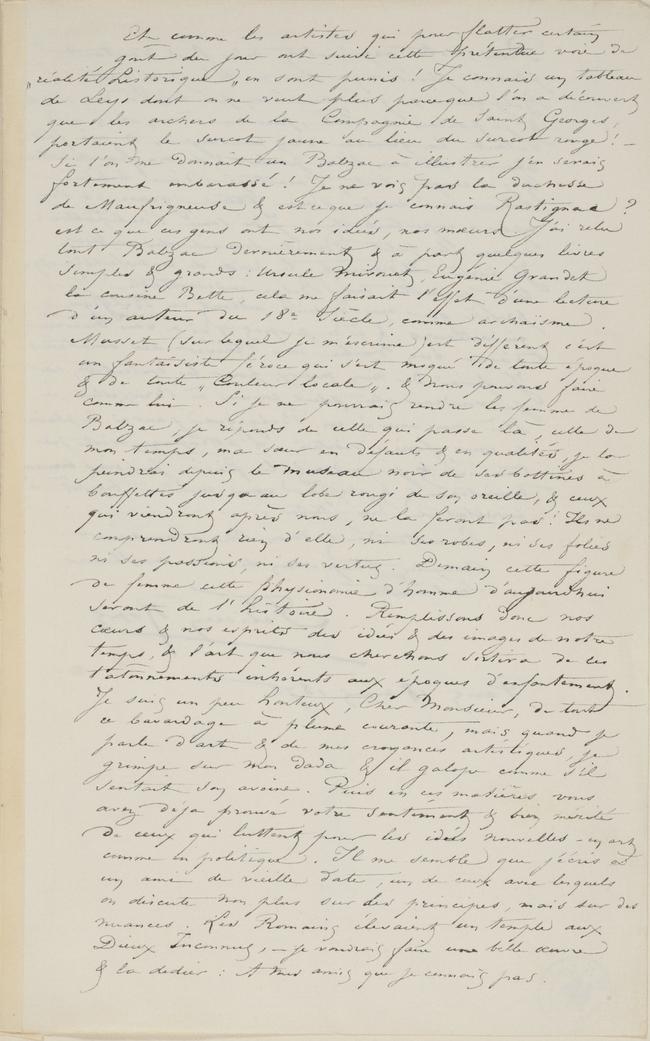 Et comme les artistes qui pour flatter certain
goût du jour ont suivi cette prétendue voie de
„réalité historique„ en sont punis ! Je connais un tableau
de Leys dont on ne veut plus parceque l'on a découvert
que les archers de la Compagnie de Saint Georges,
portaient le surcot jaune au lieu du surcot rouge ! —
Si l'on me donnait un Balzac à illustrer j'en serais
fortement embarassé ! Je ne vois pas la duchesse
de Maufrigneuse & est ce que je connais Rastignac ?
est ce que ces gens ont nos idées, nos mœurs. J'ai relu
tout Balzac dernièrement & à part quelques livres
simples & grands : Ursule Mirouet, Eugénie Grandet
la cousine Bette, cela me faisait l'effet d'une lecture
d'un auteur du 18e Siècle, comme archaïsme.
Musset (sur lequel je m'escrime) est différent c'est
un fantaisiste féroce qui s'est moqué de toute époque
& de toute „Couleur locale„. & nous pouvons faire
comme lui. Si je ne pourrais rendre les femme de
Balzac, je réponds de celle qui passe là, celle de
mon temps, ma sœur en défauts & en qualités, je la
peindrai depuis le museau noir de ses bottines à
bouffettes jusqu'au lobe rougi de son oreille, & ceux
qui viendront après nous, ne la feront pas ! Ils ne
comprendront rien d'elle, ni ses robes, ni ses folies
ni ses passions, ni ses vertus. Demain cette figure
de femme cette physionomie d'homme d'aujourd'hui
seront de l'histoire. Remplissons donc nos
cœurs & nos esprits des idées & des images de notre
temps, & l'art que nous cherchons sortira de ces
tatonnements inhérents aux époques d'enfantement.
Je suis un peu honteux, Cher Monsieur, de tout
ce bavardage à plume courante, mais quand je
parle d'art & de mes croyances artistiques, je
grimpe sur mon dada & il galope comme s'il
sentait son avoine. Puis en ces matières vous
avez déja prouvé votre sentiment & bien mérité
de ceux qui luttent pour les idées nouvelles – en art
comme en politique. Il me semble que j'écris à
un ami de vieille date, un de ceux avec lesquels
on discute non plus sur des principes, mais sur des
nuances. Les Romains élevaient un temple aux
Dieux Inconnus, — je voudrais faire une belle œuvre
& la dedier : A mes amis que je connais pas.